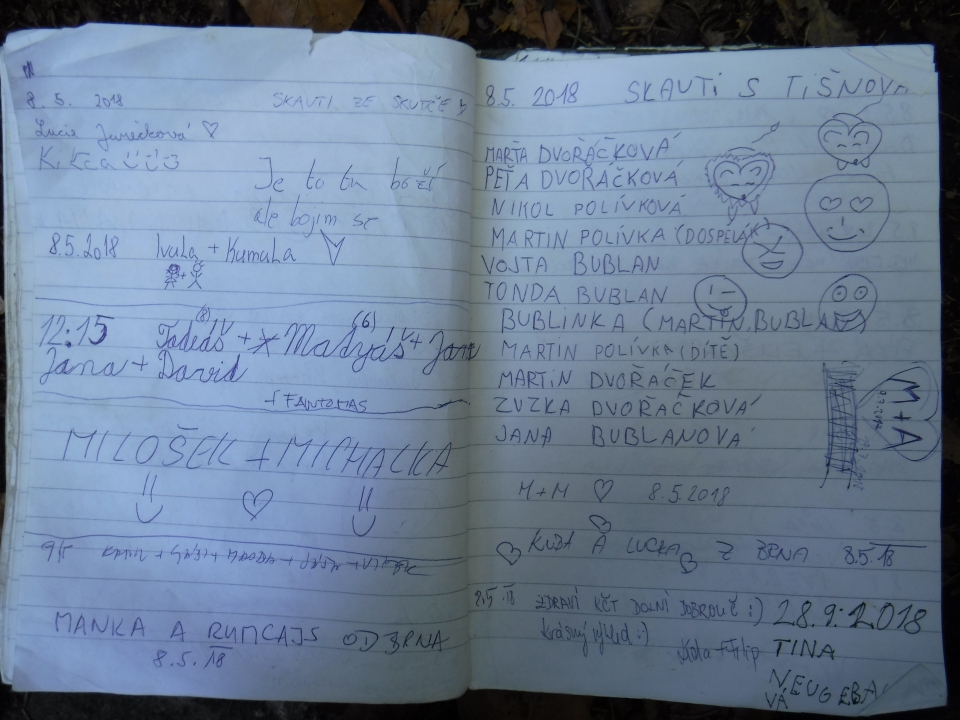 8. 5. 2018 SKAUTI ZE SKUTČE
Lucie Jurečková ♡
Je to tu boží
ale bojím se
8.5.2018 Ivula + Kumula
12:15 Tadeáš (8) + Matyáš (6) + Jana
Jana + David
+ FANTOMAS
MILOŠEK + MICHALKA
♡
9/5
MANKA A RUMCAJS OD BRNA
8.5.18
8.5. 2018 SKAUTI S TIŠNOVA
MARŤA DVOŘÁČKOVÁ
PEŤA DVOŘÁČKOVÁ
NIKOL POLÍVKOVÁ
MARTIN POLÍVKA (DOSPELÁK)
VOJTA BUBLAN
TONDA BUBLAN
BUBLINKA (MARTIN BUBLAN)
MARTIN POLÍVKA (DÍTĚ)
MARTIN DVOŘÁČEK
ZUZKA DVOŘAČKOVÁ
JANA BUBLANOVÁ
M+A
M+M ♡ 8.5.2018
KUBA A LUCKA Z BRNA 8.5.18
8.5.18 ZDRAVÍ KČT DOLNÍ DOBROUČ :)
krásný výhled :)
28.9.2018
TINA
NEUGEBA
VÁ